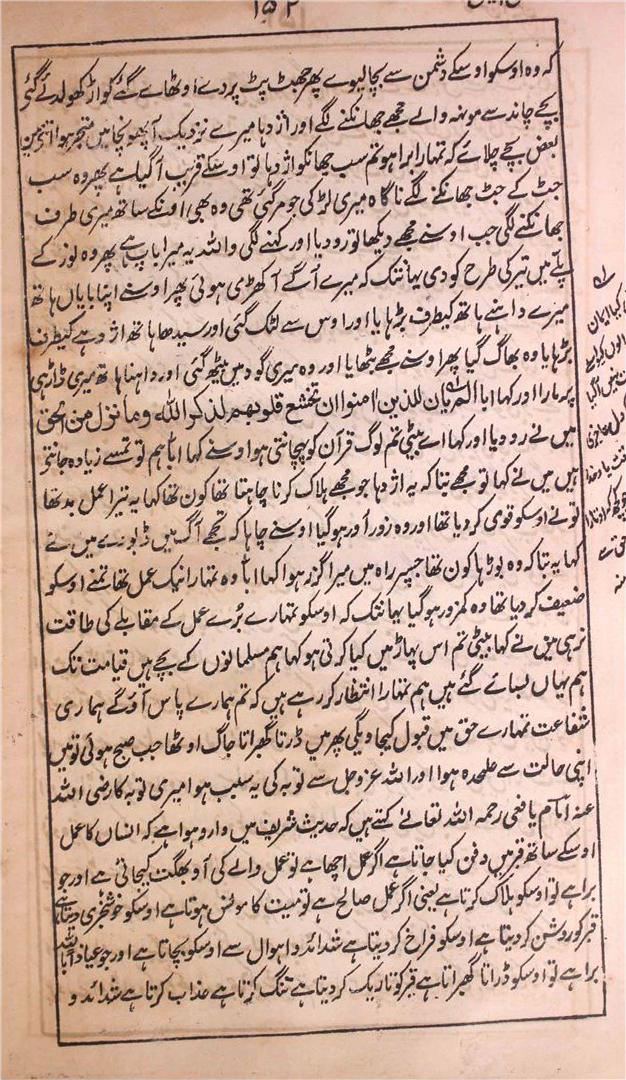 ۱۵۲
کہ وہ اوسکو اوسکے دشمن سے بچالیوے پھر جھٹ پٹ پردے اوٹھاے گئے کواڑ کھولدئے گئی
بچے چاند سے مونہہ والے مجھے جھانکنے لگے اور اژدہا میرے نزدیک آپھونچا میں متحیر ہوا اتنے میں
بعض بچے چلائے کہ تمہارا برا ہو تم سب جھانکو اژدہا تو اوسکے قریب آگیا ہے پھر وہ سب
جٹ کے جٹ جھانکنے لگے ناگاہ میری لڑکی جو مرگئی تھی وہ بھی اونکے ساتھ میری طرف
جھانکنے لگی جب اوسنے مجھے دیکھا تو رودیا اور کہنے لگی واللہ یہ میرا باپ ہے پھر وہ نور کے
پلّے میں تیر کی طرح کودی یہانتک کہ میرے آگے آکھڑی ہوئی پھر اوسنے اپنا بایاں ہاتھ
میرے داہنے ہاتھ کیطرف بڑہایا اور اوس سے لٹک گئی اور سیدھا ہاتھ اژدہے کیطرف
بڑہایا وہ بھاگ گیا پھر اوسنے مجھے بٹھایا اور وہ میری گود میں بیٹھ گئی اور داہنا ہاتھ میری ڈاڑہی
پر مارا اور کہا ابا الم یان للذین امنوا ان تخشع قلوبھم لذکر اللہ وما نزل من الحق
میں نے رودیا اور کہا اے بیٹی تم لوگ قرآن کو پہچانتی ہو اوسنے کہا ابّا ہم تو تمسے زیادہ جانتی
ہیں میں نے کہا تو مجھے بتا کہ یہ اژدہا جو مجھے ہلاک کرنا چاہتا تھا کون تھا کہا یہ تیرا عمل بد تھا
تونے اوسکو قوی کردیا تھا اور وہ زور آور ہوگیا اوسنے چاہا کہ تجھے آگ میں ڈبودے میں نے
کہا یہ بتا کہ وہ بوڑہا کون تھا جسپر راہ میں میرا گزر ہوا کہا ابّا وہ تمہارا نیک عمل تھا تمنے اوسکو
ضعیف کردیا تھا وہ کمزور ہوگیا یہانتک کہ اوسکو تمہارے بُرے عمل کے مقابلے کی طاقت
نرہی میں نے کہا بیٹی تم اس پہاڑ میں کیا کرتی ہو کہا ہم مسلمانوں کے بچے ہیں قیامت تک
ہم یہاں بسائے گئے ہیں ہم تمہارا انتظار کر رہے ہیں کہ تم ہمارے پاس آؤگے ہماری
شفاعت تمہارے حق میں قبول کیجاویگی پھر میں ڈرتا گھبراتا جاگ اوٹھا جب صبح ہوئی تو میں
اپنی حالت سے علٰحدہ ہوا اور اللہ عزوجل سے توبہ کی یہ سبب ہوا میری توبہ کا رضی اللہ
عنہ امام یافعی رحمہ اللہ تعالےٰ کہتے ہیں کہ حدیث شریف میں وارد ہوا ہے کہ انسان کا عمل
اوسکے ساتھ قبر میں دفن کیا جاتا ہے اگر عمل اچھا ہے تو عمل والے کی آو بھگت کیجاتی ہے اور جو
برا ہے تو اوسکو ہلاک کرتا ہے یعنی اگر عمل صالح ہے تو میت کا مونس ہوتا ہے اوسکو خوشخبری دیتا ہے
قبر کو روشن کردیتا ہے اوسکو فراخ کردیتا ہے شدائد و اہوال سے اوسکو بچاتا ہے اور جو عیاذاً باللہ
برا ہے تو اوسکو ڈراتا گھبراتا ہے قبر کو تاریک کردیتا ہے تنگ کرتا ہے عذاب کرتا ہے شدائد و